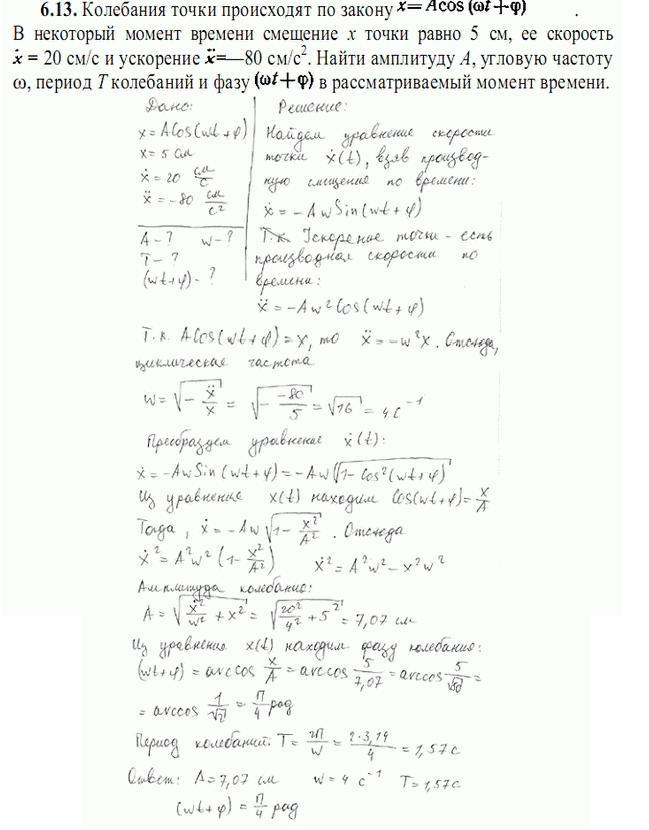 6.13. Колебания точки происходят по закону x = A cos (ωt + φ) .
В некоторый момент времени смещение x точки равно 5 см, ее скорость
ẋ = 20 см/с и ускорение ẍ=—80 см/с². Найти амплитуду A, угловую частоту
ω, период T колебаний и фазу (ωt + φ) в рассматриваемый момент времени.
Дано:
x = A Cos(ωt + φ)
x = 5 см
ẋ = 20 см/с
ẍ = -80 см/с²
A - ? ω - ?
T - ?
(ωt + φ) - ?
Решение:
Найдем уравнение скорости
точки ẋ(t), взяв производ-
ную смещения по времени:
ẋ = -Aω Sin(ωt + φ)
Т.к. Ускорение точки - есть
производная скорости по
времени:
ẍ = -Aω² Cos(ωt + φ)
Т.к. A Cos(ωt + φ) = x, то ẍ = -ω²x. Отсюда,
циклическая частота
ω = √(-ẍ/x) = √(-(-80)/5) = √16 = 4 с⁻¹
Преобразуем уравнение ẋ(t):
ẋ = -Aω Sin(ωt + φ) = -Aω √(1 - Cos²(ωt + φ))
Из уравнение x(t) находим Cos(ωt + φ) = x/A
Тогда, ẋ = -Aω √(1 - x²/A²). Отсюда
ẋ² = A²ω² (1 - x²/A²) ẋ² = A²ω² - x²ω²
Амплитуда колебание:
A = √(ẋ²/ω² + x²) = √(20²/4² + 5²) = 7,07 см
Из уравнение x(t) находим фазу колебание:
(ωt + φ) = arccos x/A = arccos 5/7,07 = arccos 5/√50 =
= arccos 1/√2 = π/4 рад
Период колебаний: T = 2π/ω = 2·3,14/4 = 1,57 с
Ответ: A = 7,07 см ω = 4 с⁻¹ T = 1,57 с
(ωt + φ) = π/4 рад